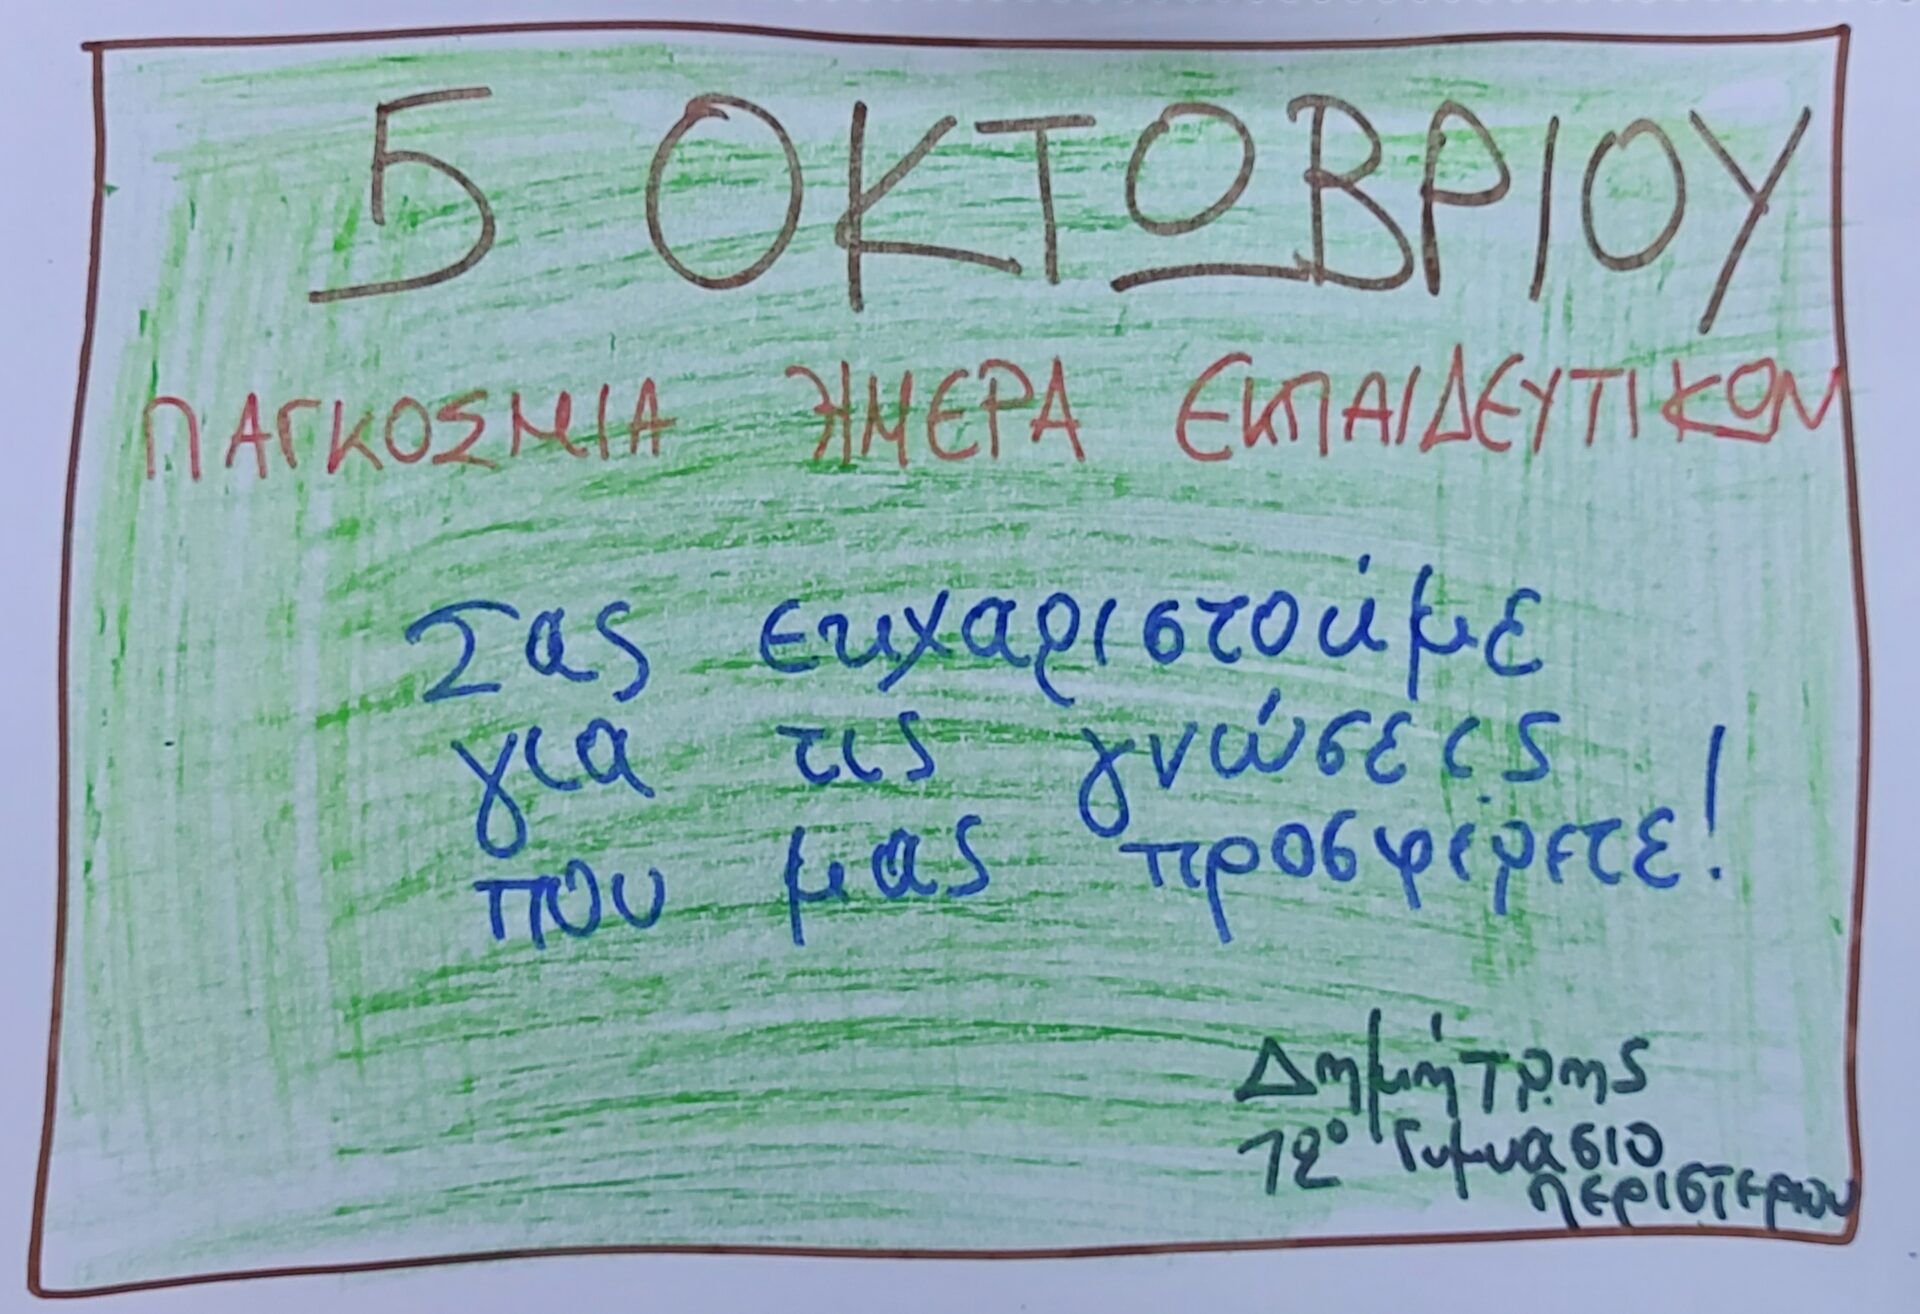 5 ΟΚΤΩΒΡΙΟΥ
ΠΑΓΚΟΣΜΙΑ ΗΜΕΡΑ ΕΚΠΑΙΔΕΥΤΙΚΩΝ
Σας ευχαριστούμε
για τις γνώσεις
που μας προσφέρετε!
Δημήτρης
12° Γυμνασιο
Περιστεριου